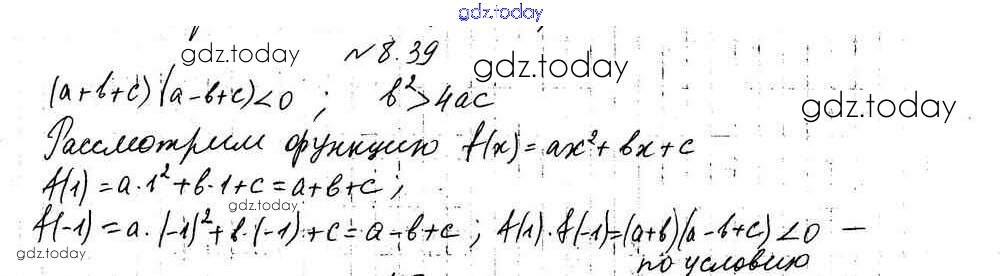 gdz.today
gdz.today
№ 8.39
gdz.today
(a+b+c)(a-b+c)<0 ; b²>4ac
gdz.today
Рассмотрим функцию f(x)=ax²+bx+c
f(1)=a·1²+b·1+c=a+b+c;
gdz.today
f(-1)=a·(-1)²+b·(-1)+c=a-b+c; f(1)·f(-1)=(a+b)(a-b+c)<0 —
gdz.today
по условию